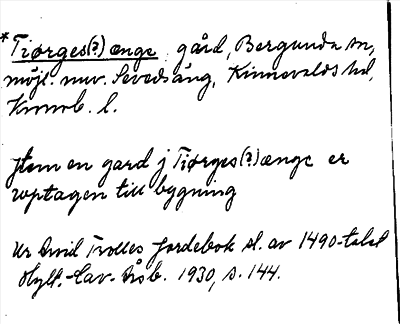 *Tiørges(?)ænge gård, Bergunda sn,
möjl. nuv. Sevedsäng, Kinnevalds hd,
Kronob. l.
Jtem en gard j Tiørges(?)ænge er
vptagen till bygning
Ur Arvid Trolles Jordebok sl. av 1490-talet
Hylt.-Cav. Årsb. 1930, s. 144.